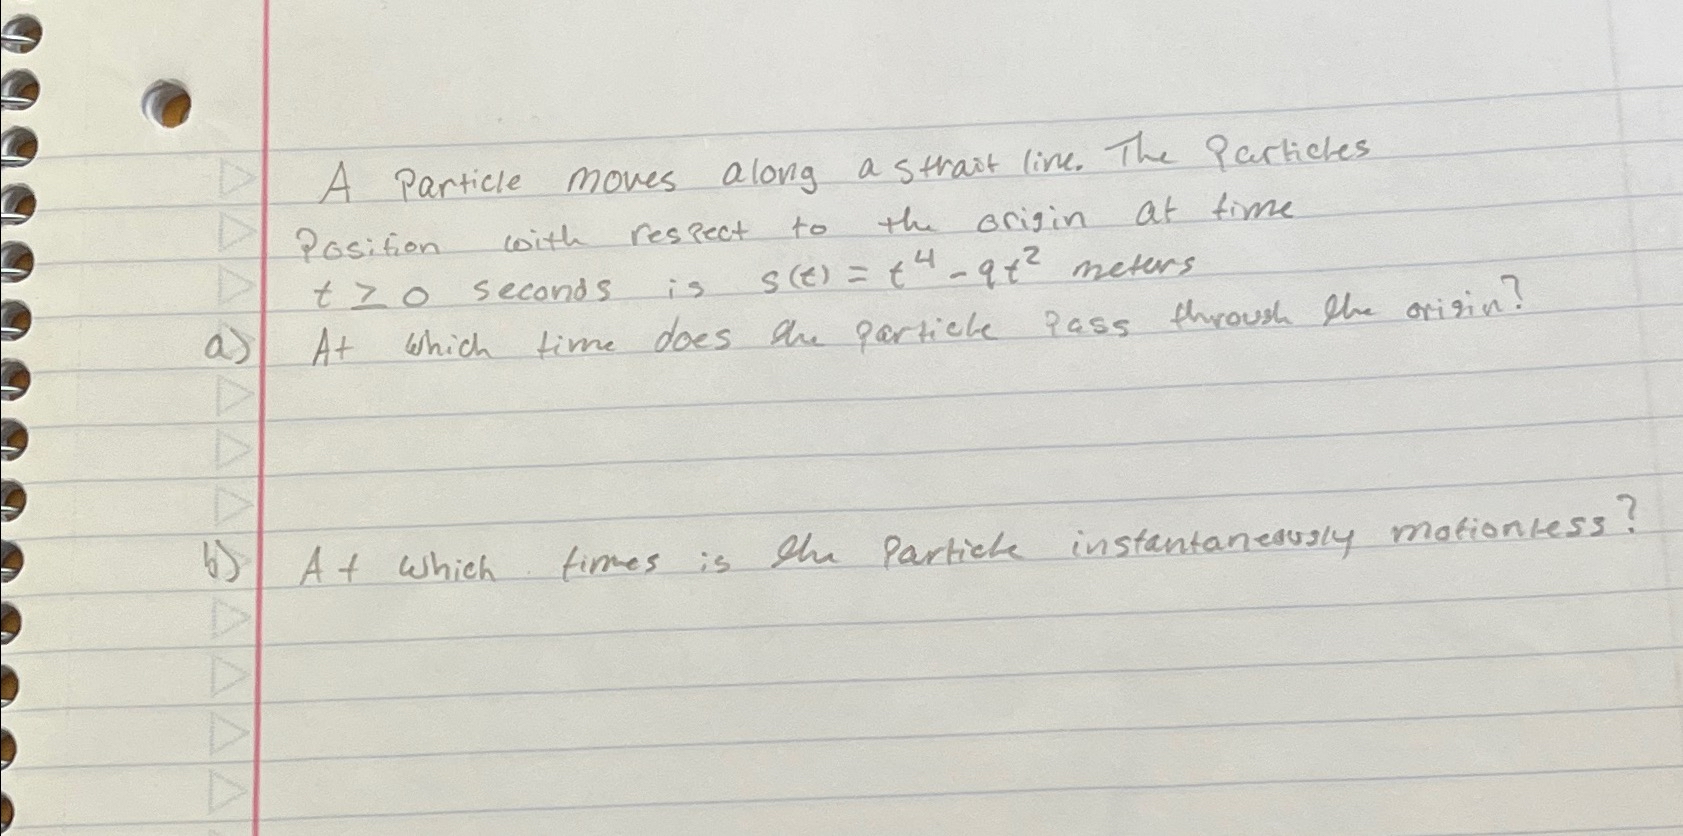 A Particle moves along a strait line. The Particles
Position with respect to the origin at time
t ≥ 0 seconds is s(t) = t⁴ - 9t² meters
a) At which time does the particle pass through the origin?
b) At which times is the Particle instantaneously motionless?